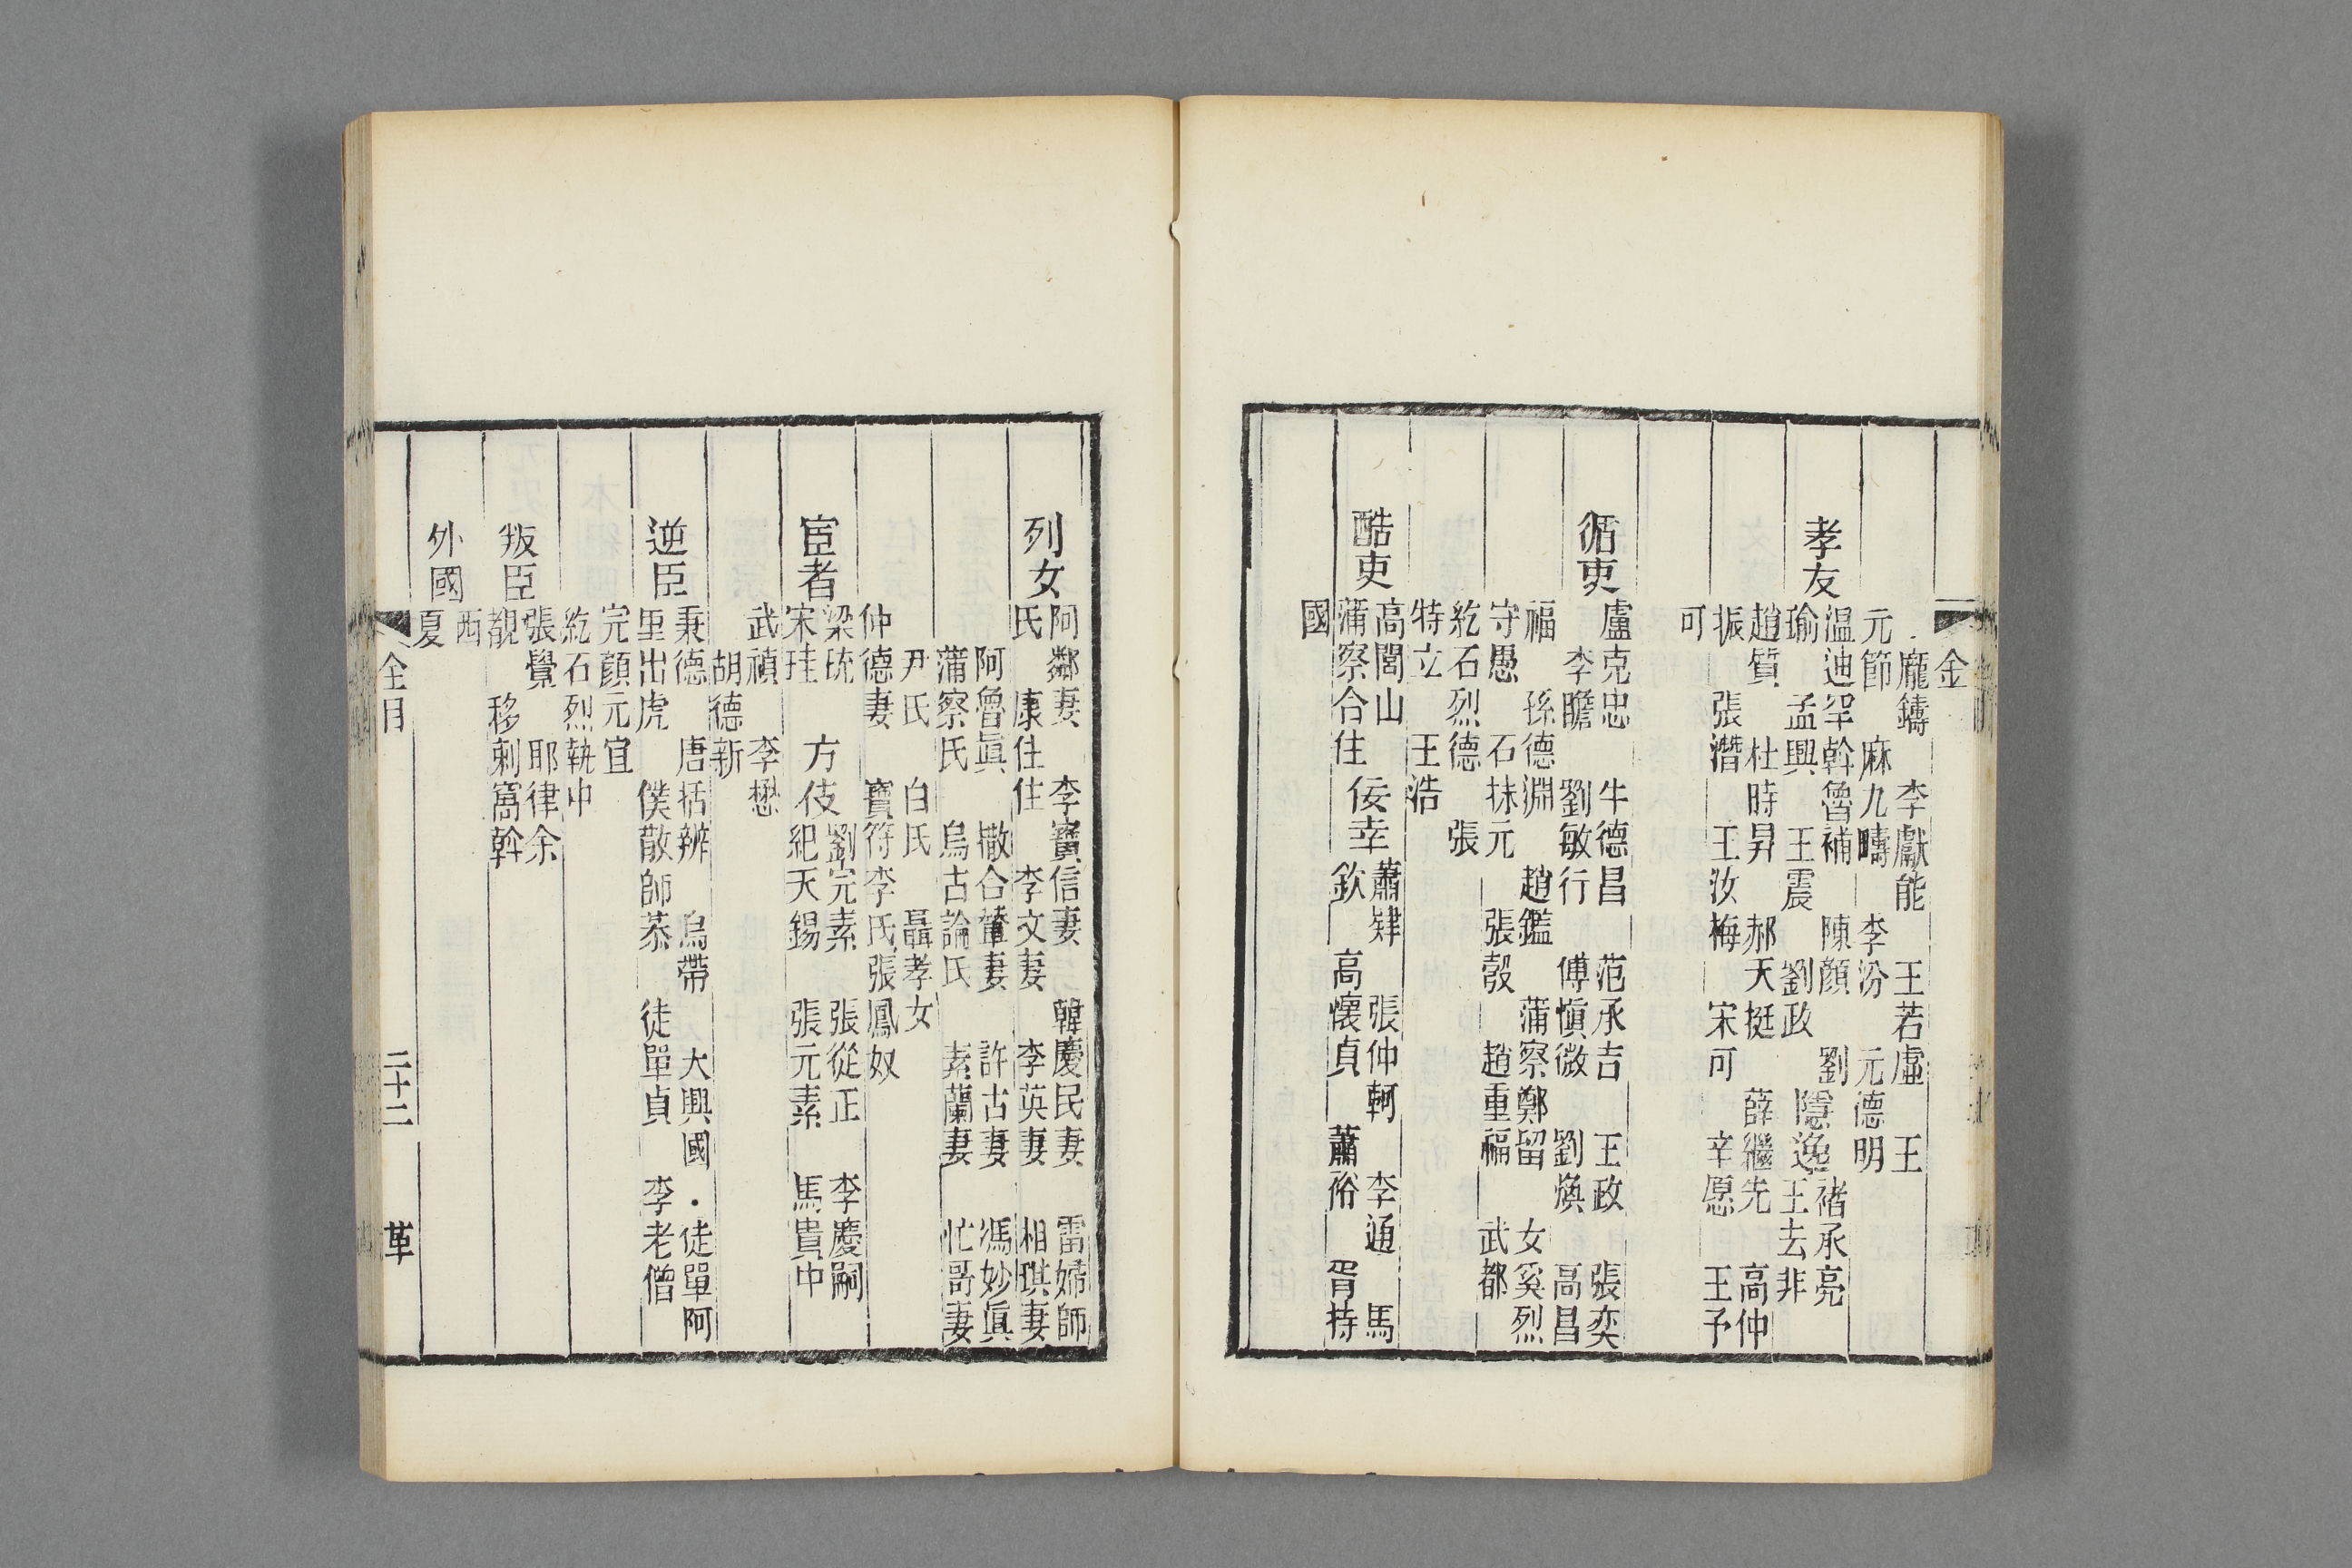 金
龐鑄　李獻能　王若虛　王
元節　麻九疇　李汾　元德明
孝友
溫迪罕斡魯補　陳顏　劉
瑜　孟興　王震　劉政
隱逸
褚承亮
王去非
趙質　杜時昇　郝天挺　薛繼先　高仲
振　張潛　王汝梅　宋可　辛愿　王予
可
循吏
盧克忠　牛德昌　范承吉　王政　張奕
李瞻　劉敏行　傅愼微　劉煥　高昌
福　孫德淵　趙鑑　蒲察鄭留　女奚烈
守愚　石抹元　張彀　趙重福　武都
紇石烈德　張
特立　王浩
酷吏
高閭山
蒲察合住
佞幸
蕭肄　張仲軻　李通　馬
欽　高懷貞　蕭裕　胥持
國
列女
阿鄰妻　李寶信妻　韓慶民妻　雷婦師
氏　康住住　李文妻　李英妻　相琪妻
阿魯眞　撒合輦妻　許古妻　馮妙眞
蒲察氏　烏古論氏　素蘭妻　忙哥妻
尹氏　白氏　聶孝女
仲德妻　寶符李氏　張鳳奴
宦者
梁珫
宋珪
方伎
劉完素　張從正　李慶嗣
紀天錫　張元素　馬貴中
武禎　李懋
胡德新
逆臣
秉德　唐括辨　烏帶　大興國　徒單阿
里出虎　僕散師恭　徒單貞　李老僧
完顏元宜
紇石烈執中
叛臣
張覺　耶律余
覩　移剌窩斡
外國
西
夏
全目　二十二　革